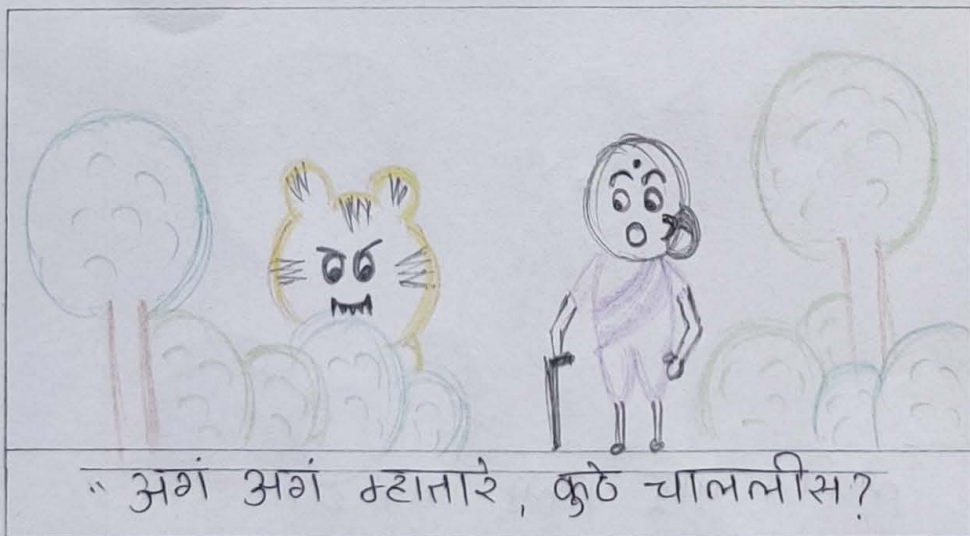 "अगं अगं म्हातारे, कुठे चाललीस?